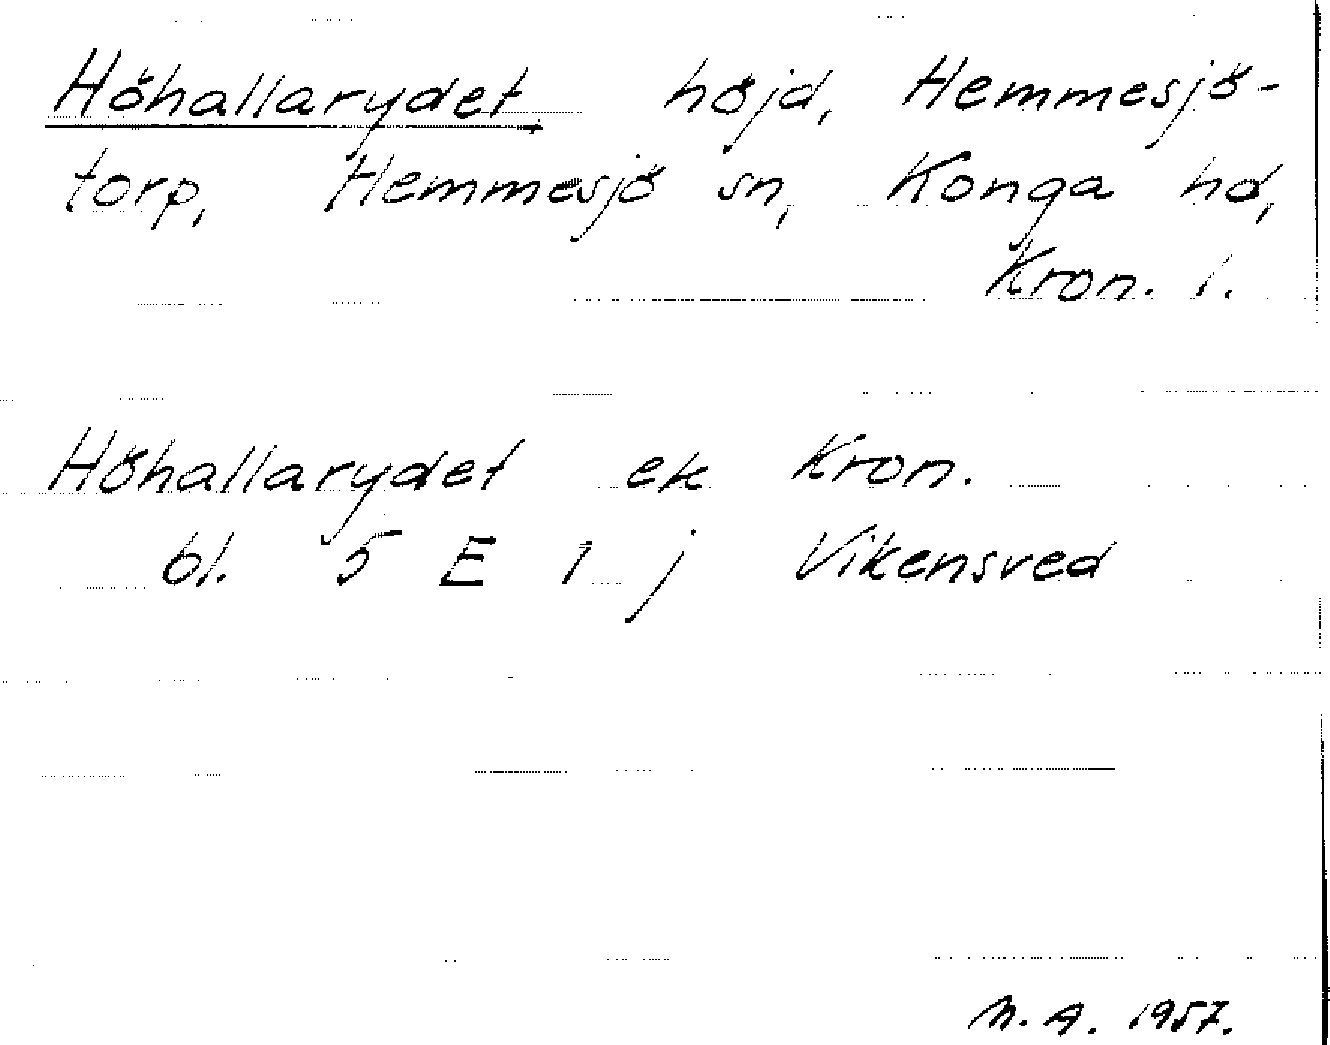 Höhallarydet höjd, Hemmesjö-
torp, Hemmesjö sn, Konga hd,
Kron. l.
Höhallarydet ek Kron.
bl. 5 E 1 j Vikensved
M. A. 1957.